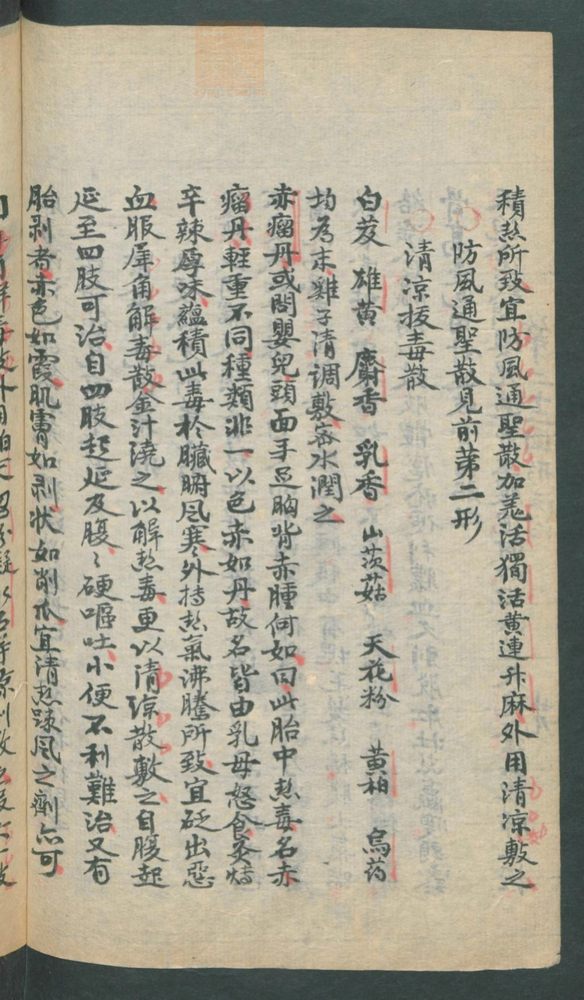 積热所致宜防風通聖散加羗活獨活黄連升麻外用清凉敷之
防風通聖散見前苐二形
清凉拔毒散
白芨 雄黄 麝香 乳香 山茨菇 天花粉 黄柏 烏药
均為末雞子清调敷 水潤之
赤瘤丹或問嬰兒頭面手足胸背赤腫何如曰此胎中热毒名赤
瘤丹軽重不同種類非一以色赤如丹故名皆由乳母怒食炙煿
辛辣厚味蘊積此毒於臟腑风寒外持热氣沸騰所致宜砭出惡
血服犀角解毒散金汁澆之以解热毒更以清凉散敷之自腹起
延至四肢可治自四肢起延及腹〻硬嘔吐小便不利難治又有
胎剥者赤色如霞肌膚如剥状如削爪宜清热踈风之劑亦可